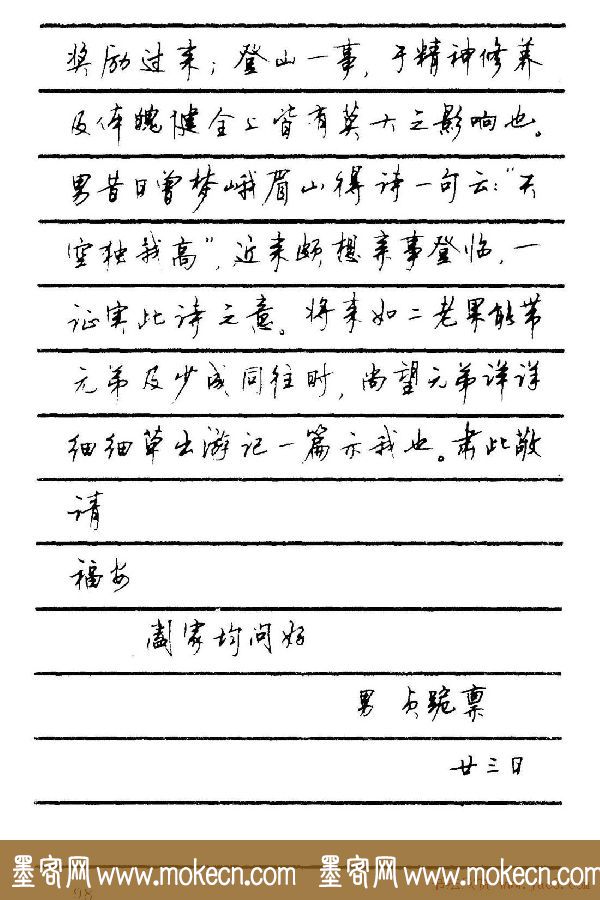 奖励过来；登山一事，于精神修养
及体魄健全上皆有莫大之影响也。
男昔日曾梦峨眉山得诗一句云：“天
空独我高”，近来颇想亲事登临，一
证实此诗之意。将来如二老果能带
元弟及少成同往时，尚望元弟详详
细细草出游记一篇示我也。肃此敬
请
福安
阖家均问好
男 贞跪禀
廿三日
墨客网 www.mokecn.com 墨客网 www.mokecn.com
98